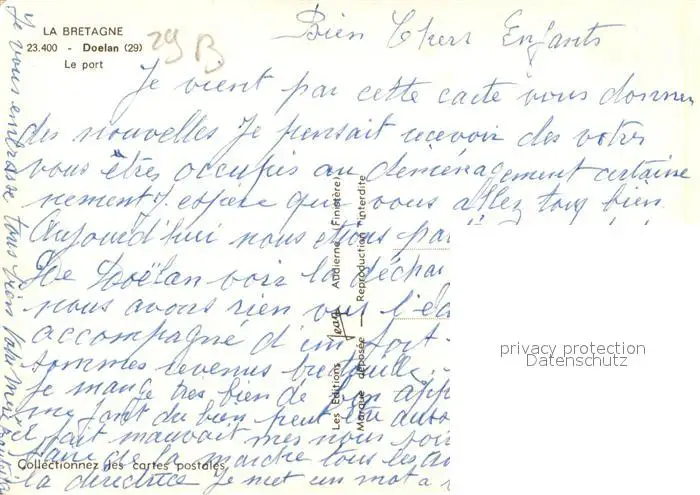 LA BRETAGNE
23.400 - Doelan (29)
Le port
29 B
Bien Chers Enfants
Je vient par cette carte vous donner
des nouvelles Je pensait recevoir des votres
vous êtres occupés au déménagement certaine
nement J espère que vous allez tous bien
Aujourd'hui nous etions
De Doëlan voir la
nous avons rien vus
accompagné d'un
sommes revenus bredouille
Je mange très bien de
me font du bien peut
il fait mauvait mes nous
faire de la marche tous les
la directrice Je met un mot a
Je vous embrasse tous bien
Les Editions Jean Audierne (Finistère)
Marque déposée - Reproduction interdite
Collectionnez les cartes postales
privacy protection
Datenschutz